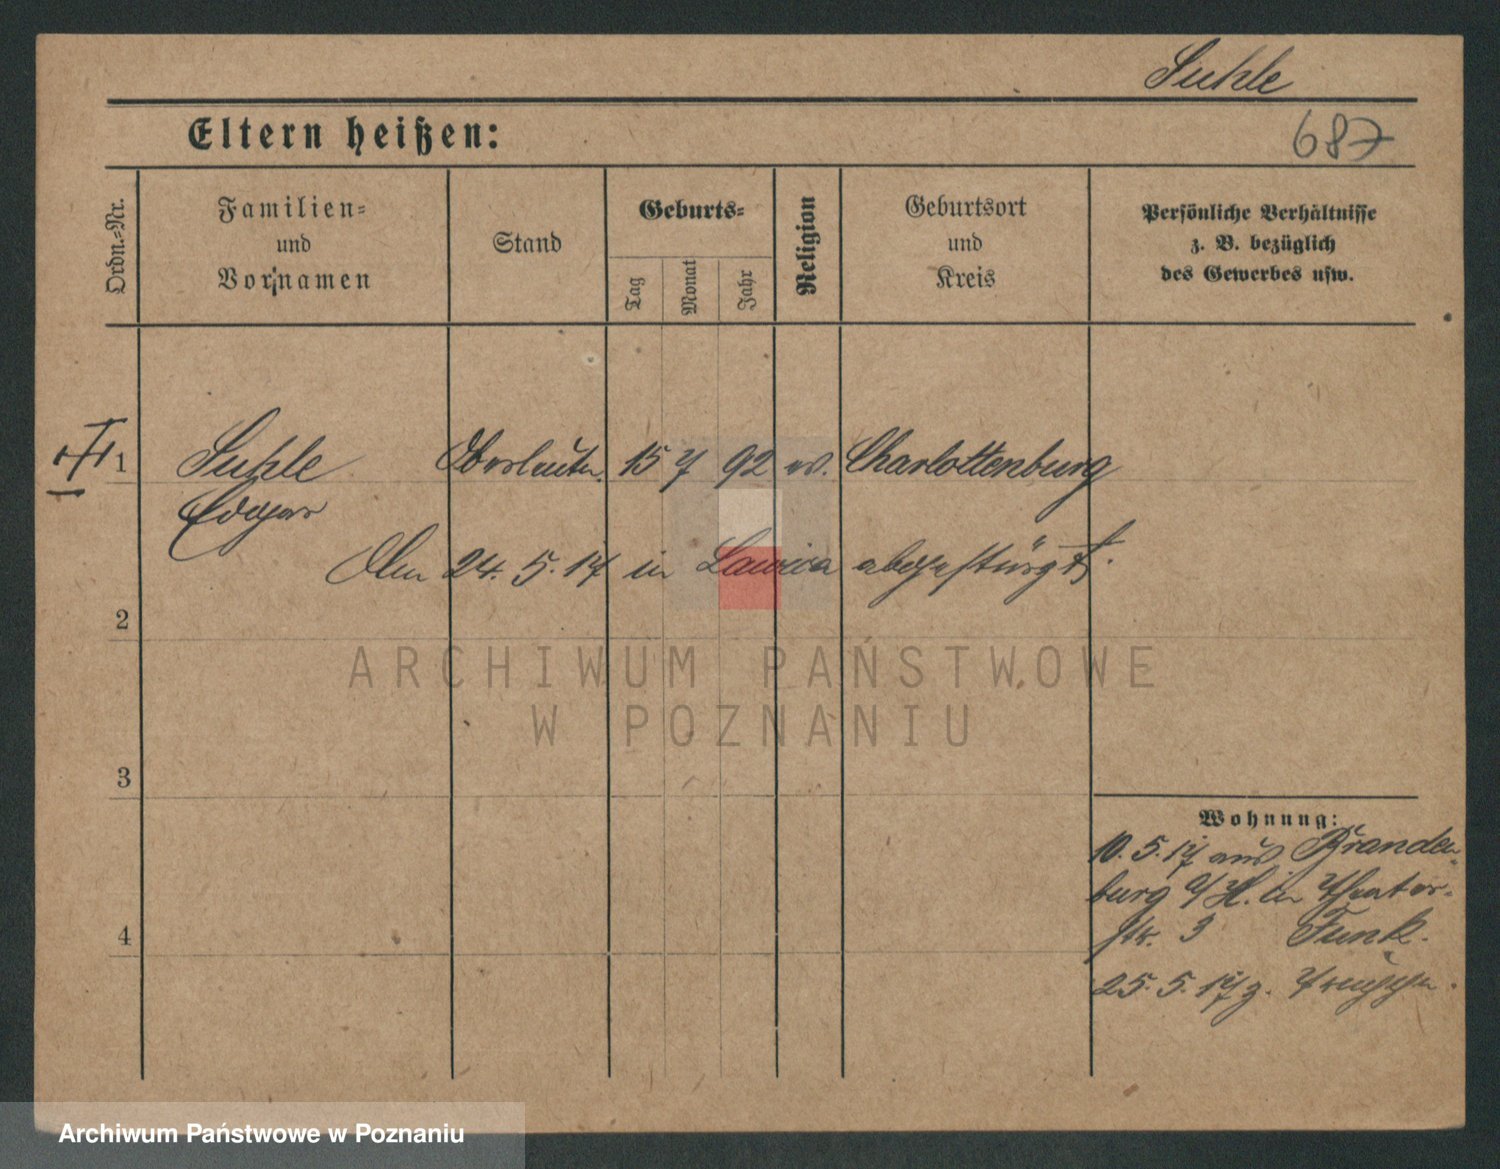 Suhle
Eltern heißen:
687
Ordn.-Nr.
Familien-
und
Vornamen
Stand
Geburts-
Tag
Monat
Jahr
Religion
Geburtsort
und
Kreis
Persönliche Verhältnisse
z. B. bezüglich
des Gewerbes usw.
1
Suhle Oberleutn. 15 7 92 ev. Charlottenburg
Edgar
Am 24. 5. 17 in Lawica abgestürzt.
2
ARCHIWUM PAŃSTWOWE
W POZNANIU
3
Wohnung:
10. 5. 17 aus Branden-
burg a/H. in Theater-
str. 3 Funk.
4
25. 5. 17 z.
Archiwum Państwowe w Poznaniu